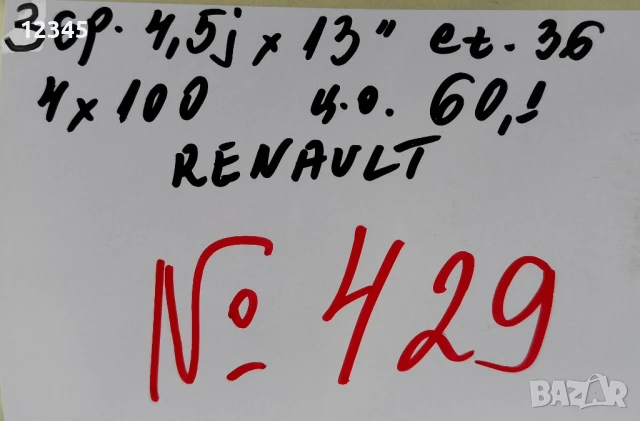 12345
3бр. 4,5j x 13" et. 36
4x100 ц.о. 60,1
RENAULT
№ 429
BAZAR